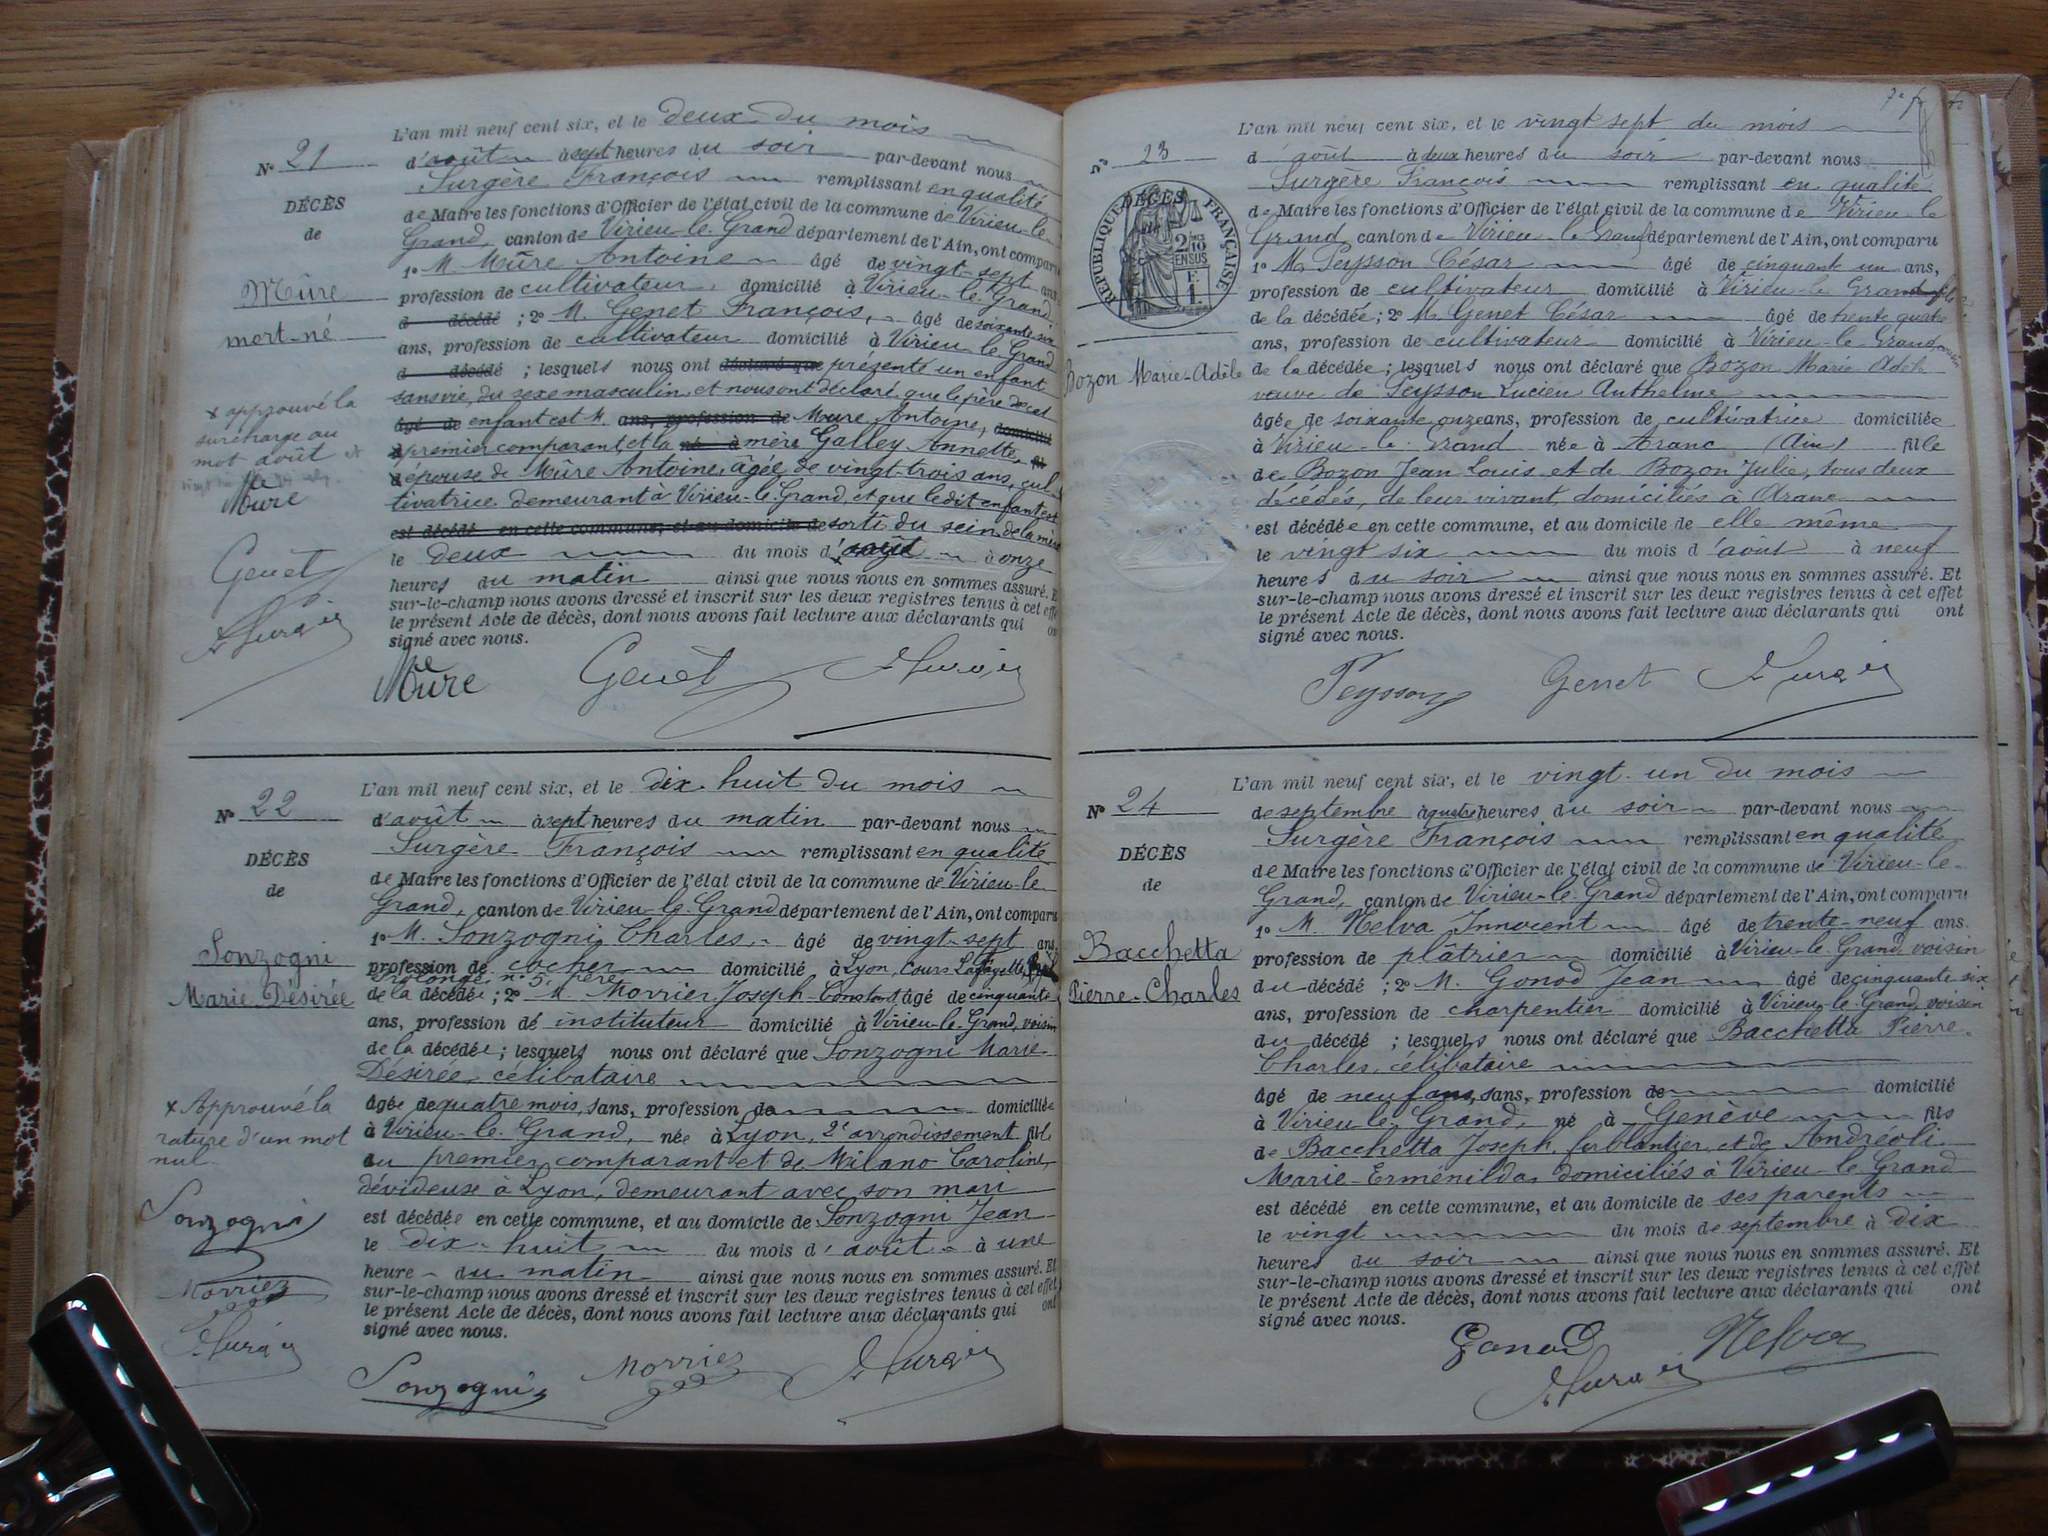 L'an mil neuf cent six, et le deux du mois
N° 21 d'août à sept heures du soir par-devant nous
Surgère François remplissant en qualité
DÉCÈS de Maire les fonctions d'Officier de l'état civil de la commune de Virieu-le-
de Grand, canton de Virieu-le-Grand département de l'Ain, ont comparu
1° M. Mûre Antoine âgé de vingt-sept ans,
Mûre profession de cultivateur, domicilié à Virieu-le-Grand
d décédé ; 2° M. Genet François, âgé de soixante six
mort-né ans, profession de cultivateur domicilié à Virieu le Grand
d décédé ; lesquels nous ont déclaré que présenté un enfant
sans vie, du sexe masculin, et nous ont déclaré que le père de cet
x approuvé la âgé de enfant est M. ans, profession de Mure Antoine, domicilié
surcharge au premier comparant, et la né à mère Galley Annette,
mot août épouse de Mûre Antoine, âgée de vingt-trois ans, cul-
Mure tivatrice demeurant à Virieu-le-Grand, et que le dit enfant est
est décédé en cette commune, et au domicile de sorti du sein de la mère
Genet le deux du mois d'août à onze
heures du matin ainsi que nous nous en sommes assuré. Et
sur-le-champ nous avons dressé et inscrit sur les deux registres tenus à cet effet
le présent Acte de décès, dont nous avons fait lecture aux déclarants qui ont
signé avec nous.
Mure Genet
L'an mil neuf cent six, et le dix-huit du mois
N° 22 d'août à sept heures du matin par-devant nous
Surgère François remplissant en qualité
DÉCÈS de Maire les fonctions d'Officier de l'état civil de la commune de Virieu-le-
de Grand, canton de Virieu-le-Grand département de l'Ain, ont comparu
1° M. Sonzogni Charles, âgé de vingt-sept ans,
Sonzogni profession de cocher domicilié à Lyon, cours Lafayette,
prolongé, n° 5, père
Marie Désirée de la décédée ; 2° M. Morrier Joseph-Constant âgé de cinquante
ans, profession de instituteur domicilié à Virieu-le-Grand, voisin
de la décédée ; lesquels nous ont déclaré que Sonzogni Marie
Désirée, célibataire
x Approuvé la âgée de quatre mois, sans, profession de domiciliée
rature d'un mot à Virieu-le-Grand, née à Lyon, 2e arrondissement fille
nul du premier comparant et de Milano Caroline,
dévideuse à Lyon, demeurant avec son mari
Sonzogni est décédée en cette commune, et au domicile de Sonzogni Jean
le dix-huit du mois d'août à une
Morrier heure du matin ainsi que nous nous en sommes assuré. Et
sur-le-champ nous avons dressé et inscrit sur les deux registres tenus à cet effet
le présent Acte de décès, dont nous avons fait lecture aux déclarants qui ont
signé avec nous.
Sonzogni Morrier
L'an mil neuf cent six, et le vingt sept du mois
N° 23 d'août à deux heures du soir par-devant nous
Surgère François remplissant en qualité
DÉCÈS
RÉPUBLIQUE FRANÇAISE
de Maire les fonctions d'Officier de l'état civil de la commune de Virieu-le
Grand canton de Virieu-le-Grand département de l'Ain, ont comparu
1° M. Peysson César âgé de cinquante un ans,
profession de cultivateur domicilié à Virieu-le-Grand fils
de la décédée ; 2° M. Genet César âgé de trente quatre
ans, profession de cultivateur domicilié à Virieu-le-Grand
Bozon Marie-Adèle de la décédée ; lesquels nous ont déclaré que Bozon Marie Adèle
veuve de Peysson Lucien Anthelme
âgée de soixante onze ans, profession de cultivatrice domiciliée
à Virieu-le-Grand née à Aranc (Ain) fille
de Bozon Jean Louis et de Bozon Julie, tous deux
décédés, de leur vivant domiciliés à Aranc
est décédée en cette commune, et au domicile de elle même
le vingt six du mois d'août à neuf
heures du soir ainsi que nous nous en sommes assuré. Et
sur-le-champ nous avons dressé et inscrit sur les deux registres tenus à cet effet
le présent Acte de décès, dont nous avons fait lecture aux déclarants qui ont
signé avec nous.
Peysson Genet
L'an mil neuf cent six, et le vingt-un du mois
N° 24 de septembre à quatre heures du soir par-devant nous
Surgère François remplissant en qualité
DÉCÈS de Maire les fonctions d'Officier de l'état civil de la commune de Virieu-le-
de Grand, canton de Virieu-le-Grand département de l'Ain, ont comparu
1° M. Nelva Innocent âgé de trente-neuf ans.
Bacchetta profession de plâtrier domicilié à Virieu-le-Grand, voisin
du décédé ; 2° M. Gonod Jean âgé de cinquante-six
Pierre-Charles ans, profession de charpentier domicilié à Virieu-le-Grand, voisin
du décédé ; lesquels nous ont déclaré que Bacchetta Pierre
Charles, célibataire
âgé de neuf ans, sans, profession de domicilié
à Virieu-le-Grand, né à Genève fils
de Bacchetta Joseph, ferblantier, et de Andréoli
Marie-Erménilda, domiciliés à Virieu-le-Grand
est décédé en cette commune, et au domicile de ses parents
le vingt du mois de septembre à dix
heures du soir ainsi que nous nous en sommes assuré. Et
sur-le-champ nous avons dressé et inscrit sur les deux registres tenus à cet effet
le présent Acte de décès, dont nous avons fait lecture aux déclarants qui ont
signé avec nous.
Gonod Nelva